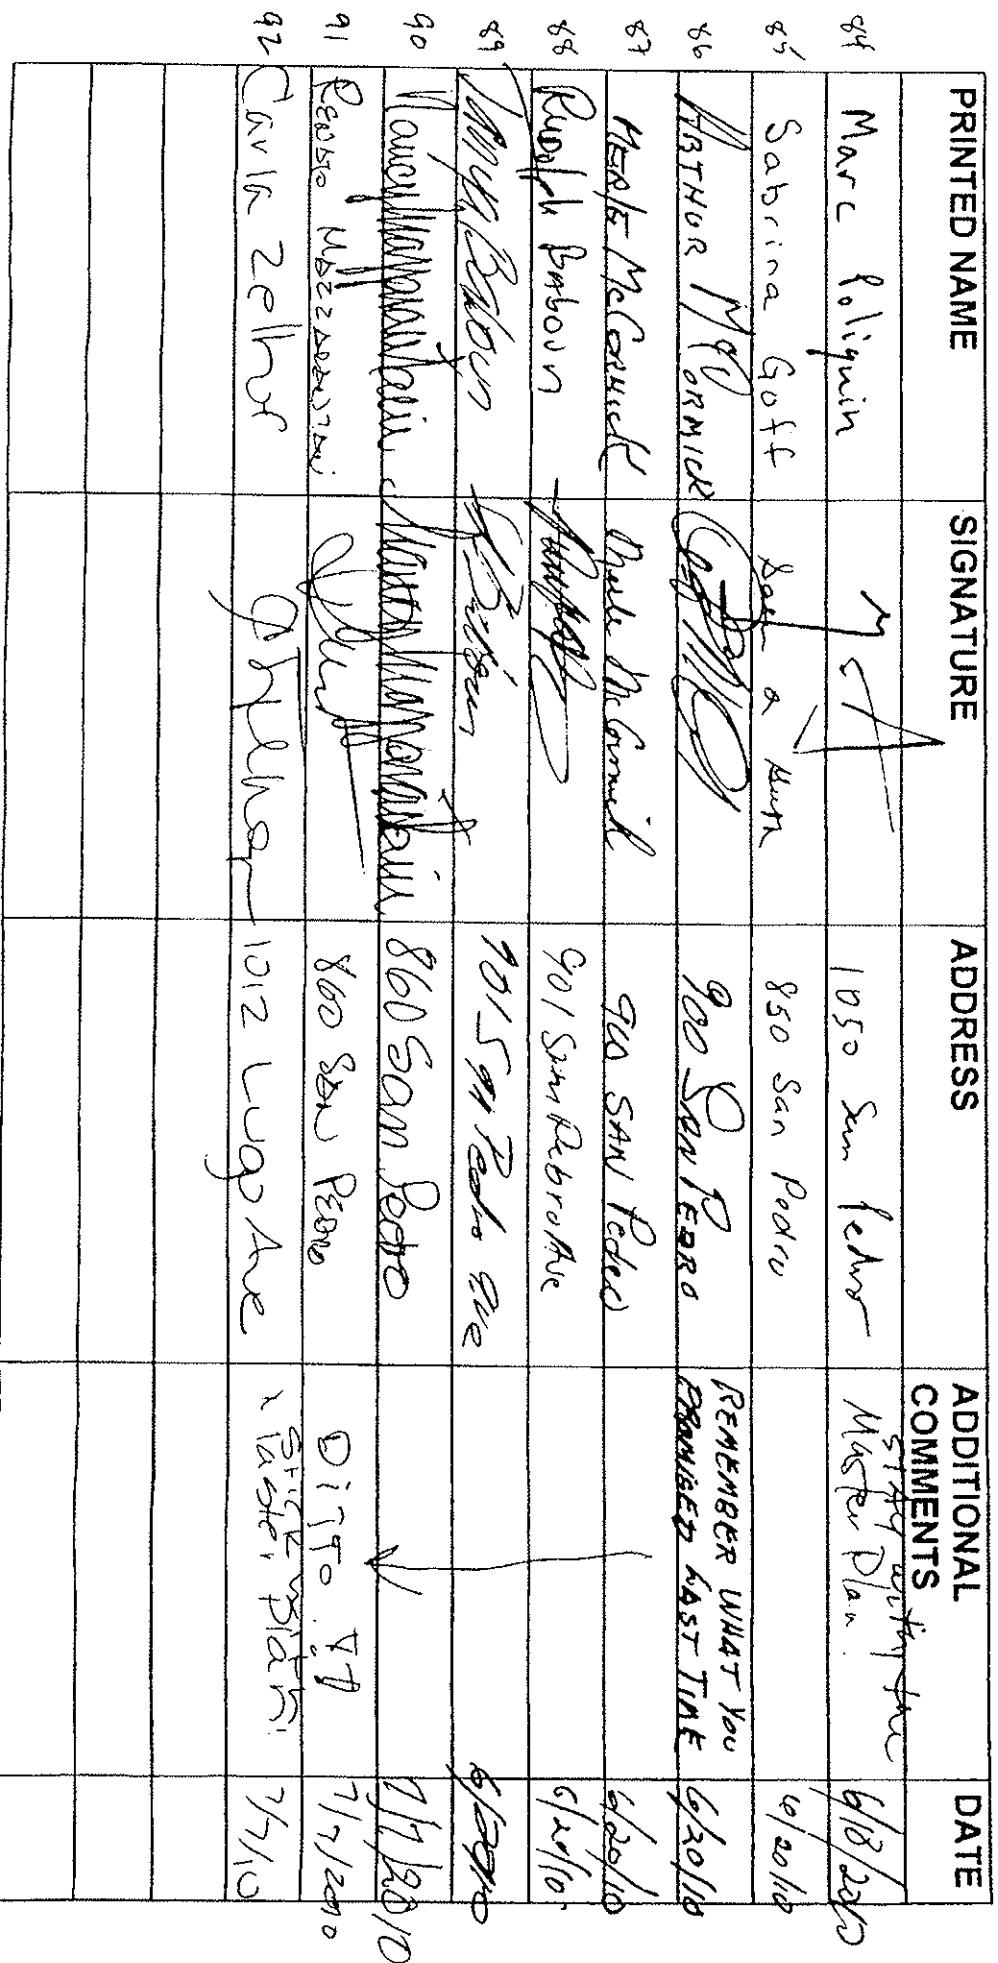 PRINTED NAME SIGNATURE ADDRESS ADDITIONAL COMMENTS DATE
84 Marc Poliquin 1050 San Pedro Stay with the Master Plan. 6/18/2010
85 Sabrina Goff 850 San Pedro 6/20/10
86 ARTHUR McCORMICK 900 SAN PEDRO REMEMBER WHAT YOU PROMISED LAST TIME 6/20/10
87 MERLE McCORMICK Merle McCormick 900 SAN Pedro 6/20/10
88 Rudolph Baboun 901 San Pedro Ave 6/20/10
89 Baboun Baboun 901 San Pedro Ave 6/20/10
90 Nancy 860 San Pedro 7/7/2010
91 860 San Pedro Ditto 7/7/2010
92 Carla Zelhof 1012 Lugo Ave Stick w/ Master plan! 7/7/10